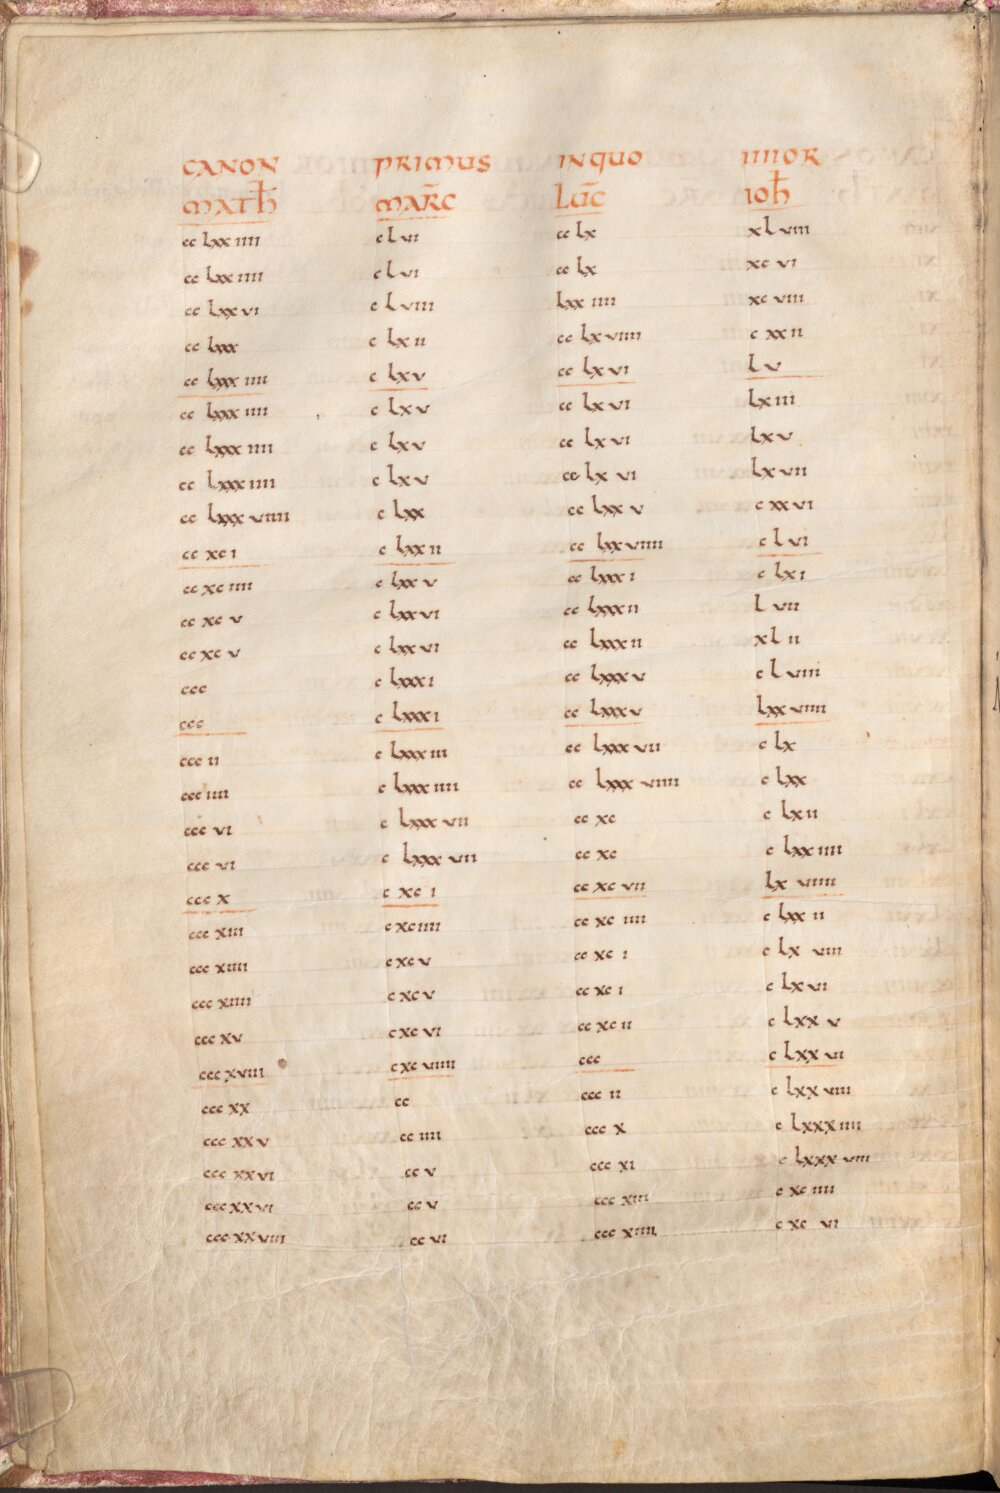 CANON PRIMUS IN QUO IIIIOR
MATH MARC LUC IOH
cc lxxiiii c lvi cc lx xlviii
cc lxxiiii c lvi cc lx xcvi
cc lxxvi c lviii lxxiiii xcviii
cc lxxx c lxii cc lxviiii c xxii
cc lxxxiiii c lxv cc lxvi lv
cc lxxxiiii c lxv cc lxvi lxiii
cc lxxxiiii c lxv cc lxvi lxv
cc lxxxiiii c lxv cc lxvi lxvii
cc lxxxviiii c lxx cc lxxv c xxvi
cc xci c lxxii cc lxxviiii c lvi
cc xciiii c lxxv cc lxxxi c lxi
cc xcv c lxxvi cc lxxxii lvii
cc xcv c lxxvi cc lxxxii xlii
ccc c lxxxi cc lxxxv c lviii
ccc c lxxxi cc lxxxv lxxviiii
ccc ii c lxxxiii cc lxxxvii c lx
ccc iiii c lxxxiiii cc lxxxviiii c lxx
ccc vi c lxxxvii cc xc c lxii
ccc vi c lxxxvii cc xc c lxxiiii
ccc x c xci cc xcvii lxviiii
ccc xiii c xciiii cc xciiii c lxxii
ccc xiiii c xcv cc xci c lxviii
ccc xiiii c xcv cc xci c lxvi
ccc xv c xcvi cc xcii c lxxv
ccc xviii c xcviiii ccc c lxxvi
ccc xx cc ccc ii c lxxviii
ccc xxv cc iiii ccc x c lxxxiiii
ccc xxvi cc v ccc xi c lxxxviii
ccc xxvi cc v ccc xiii c xciiii
ccc xxviii cc vi ccc xiiii c xcvi